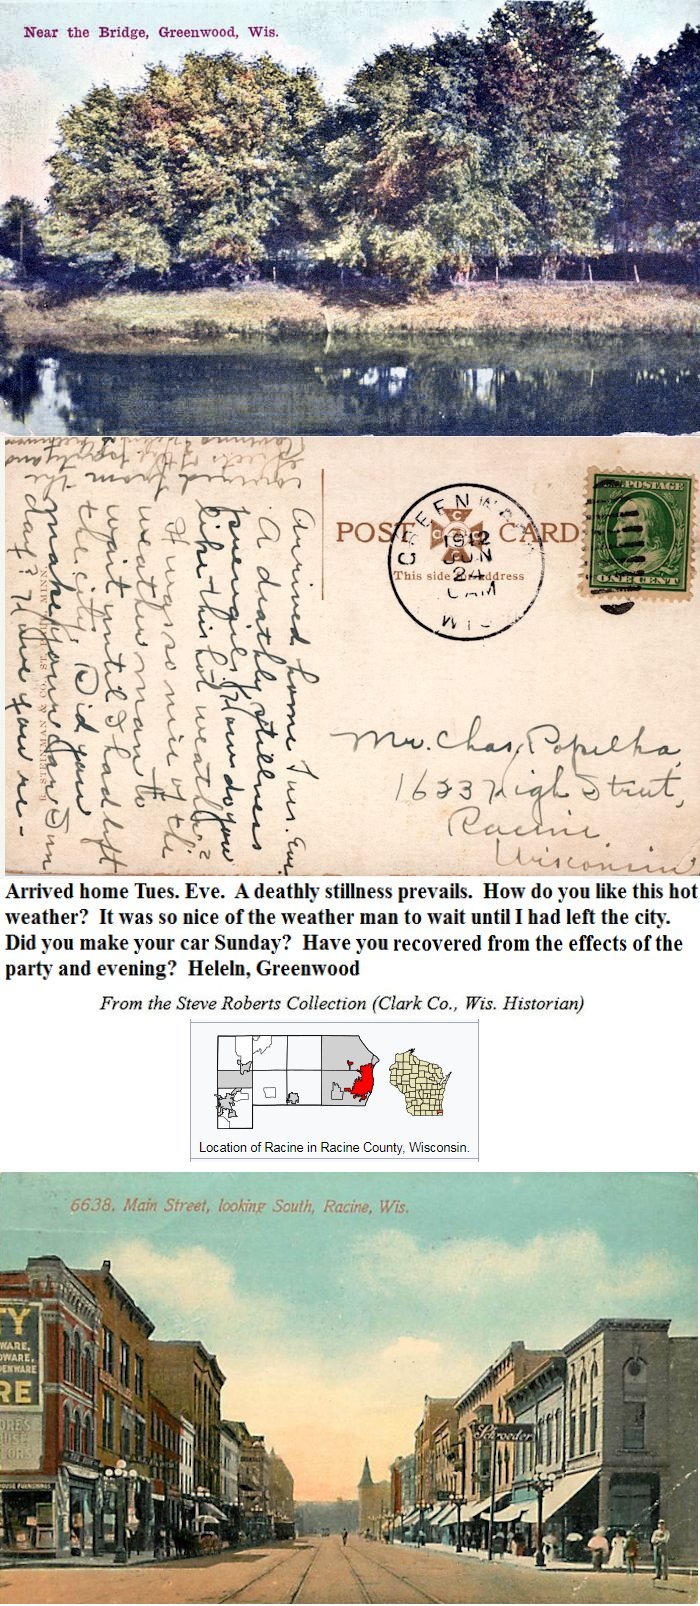 Near the Bridge, Greenwood, Wis.
POST CARD
This side Address
GREENW
1912
JUN
24
AM
WIS
POSTAGE
ONE CENT
Arrived home Tues. Eve.
A deathly stillness
prevails. How do you
like this hot weather?
It was so nice of the
weather man to
wait until I had left
the city. Did you
make your car Sun
day? Have you re-
covered from the
effects of the
party and
Mr. Chas. Popelka,
1633 High Street,
Racine
Wisconsin
STEINMAN & CO. ST. MINN.
Arrived home Tues. Eve. A deathly stillness prevails. How do you like this hot
weather? It was so nice of the weather man to wait until I had left the city.
Did you make your car Sunday? Have you recovered from the effects of the
party and evening? Heleln, Greenwood
From the Steve Roberts Collection (Clark Co., Wis. Historian)
Location of Racine in Racine County, Wisconsin.
6638. Main Street, looking South, Racine, Wis.
TY
WARE,
DWARE,
DENWARE
RE
HOUSE FURNISHINGS
Schroeder